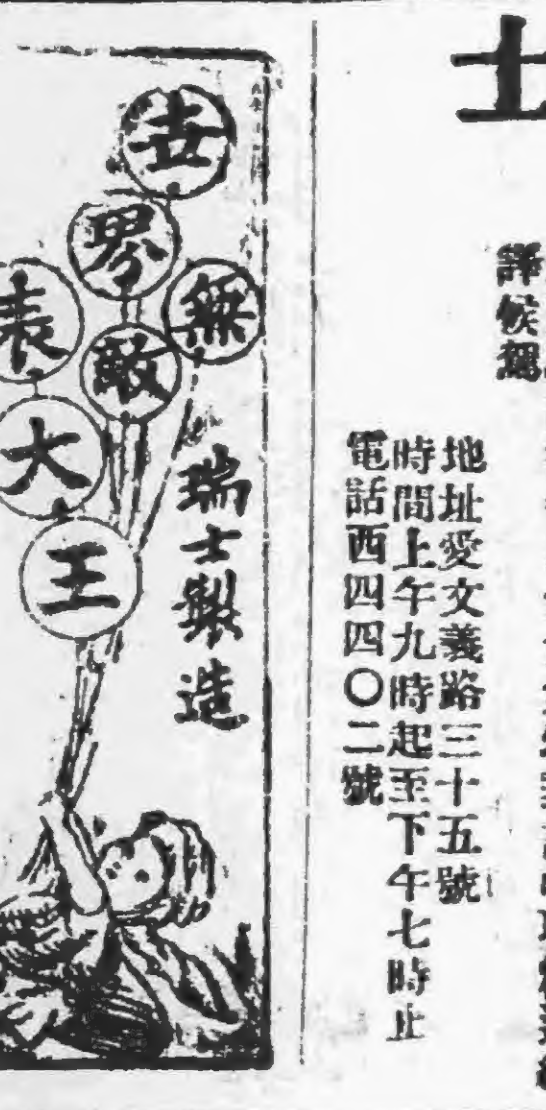 士
譯候駕
地址愛文義路三十五號
時間上午九時起至下午七時止
電話西四四〇二號
世界
無敵
表大王
瑞士製造